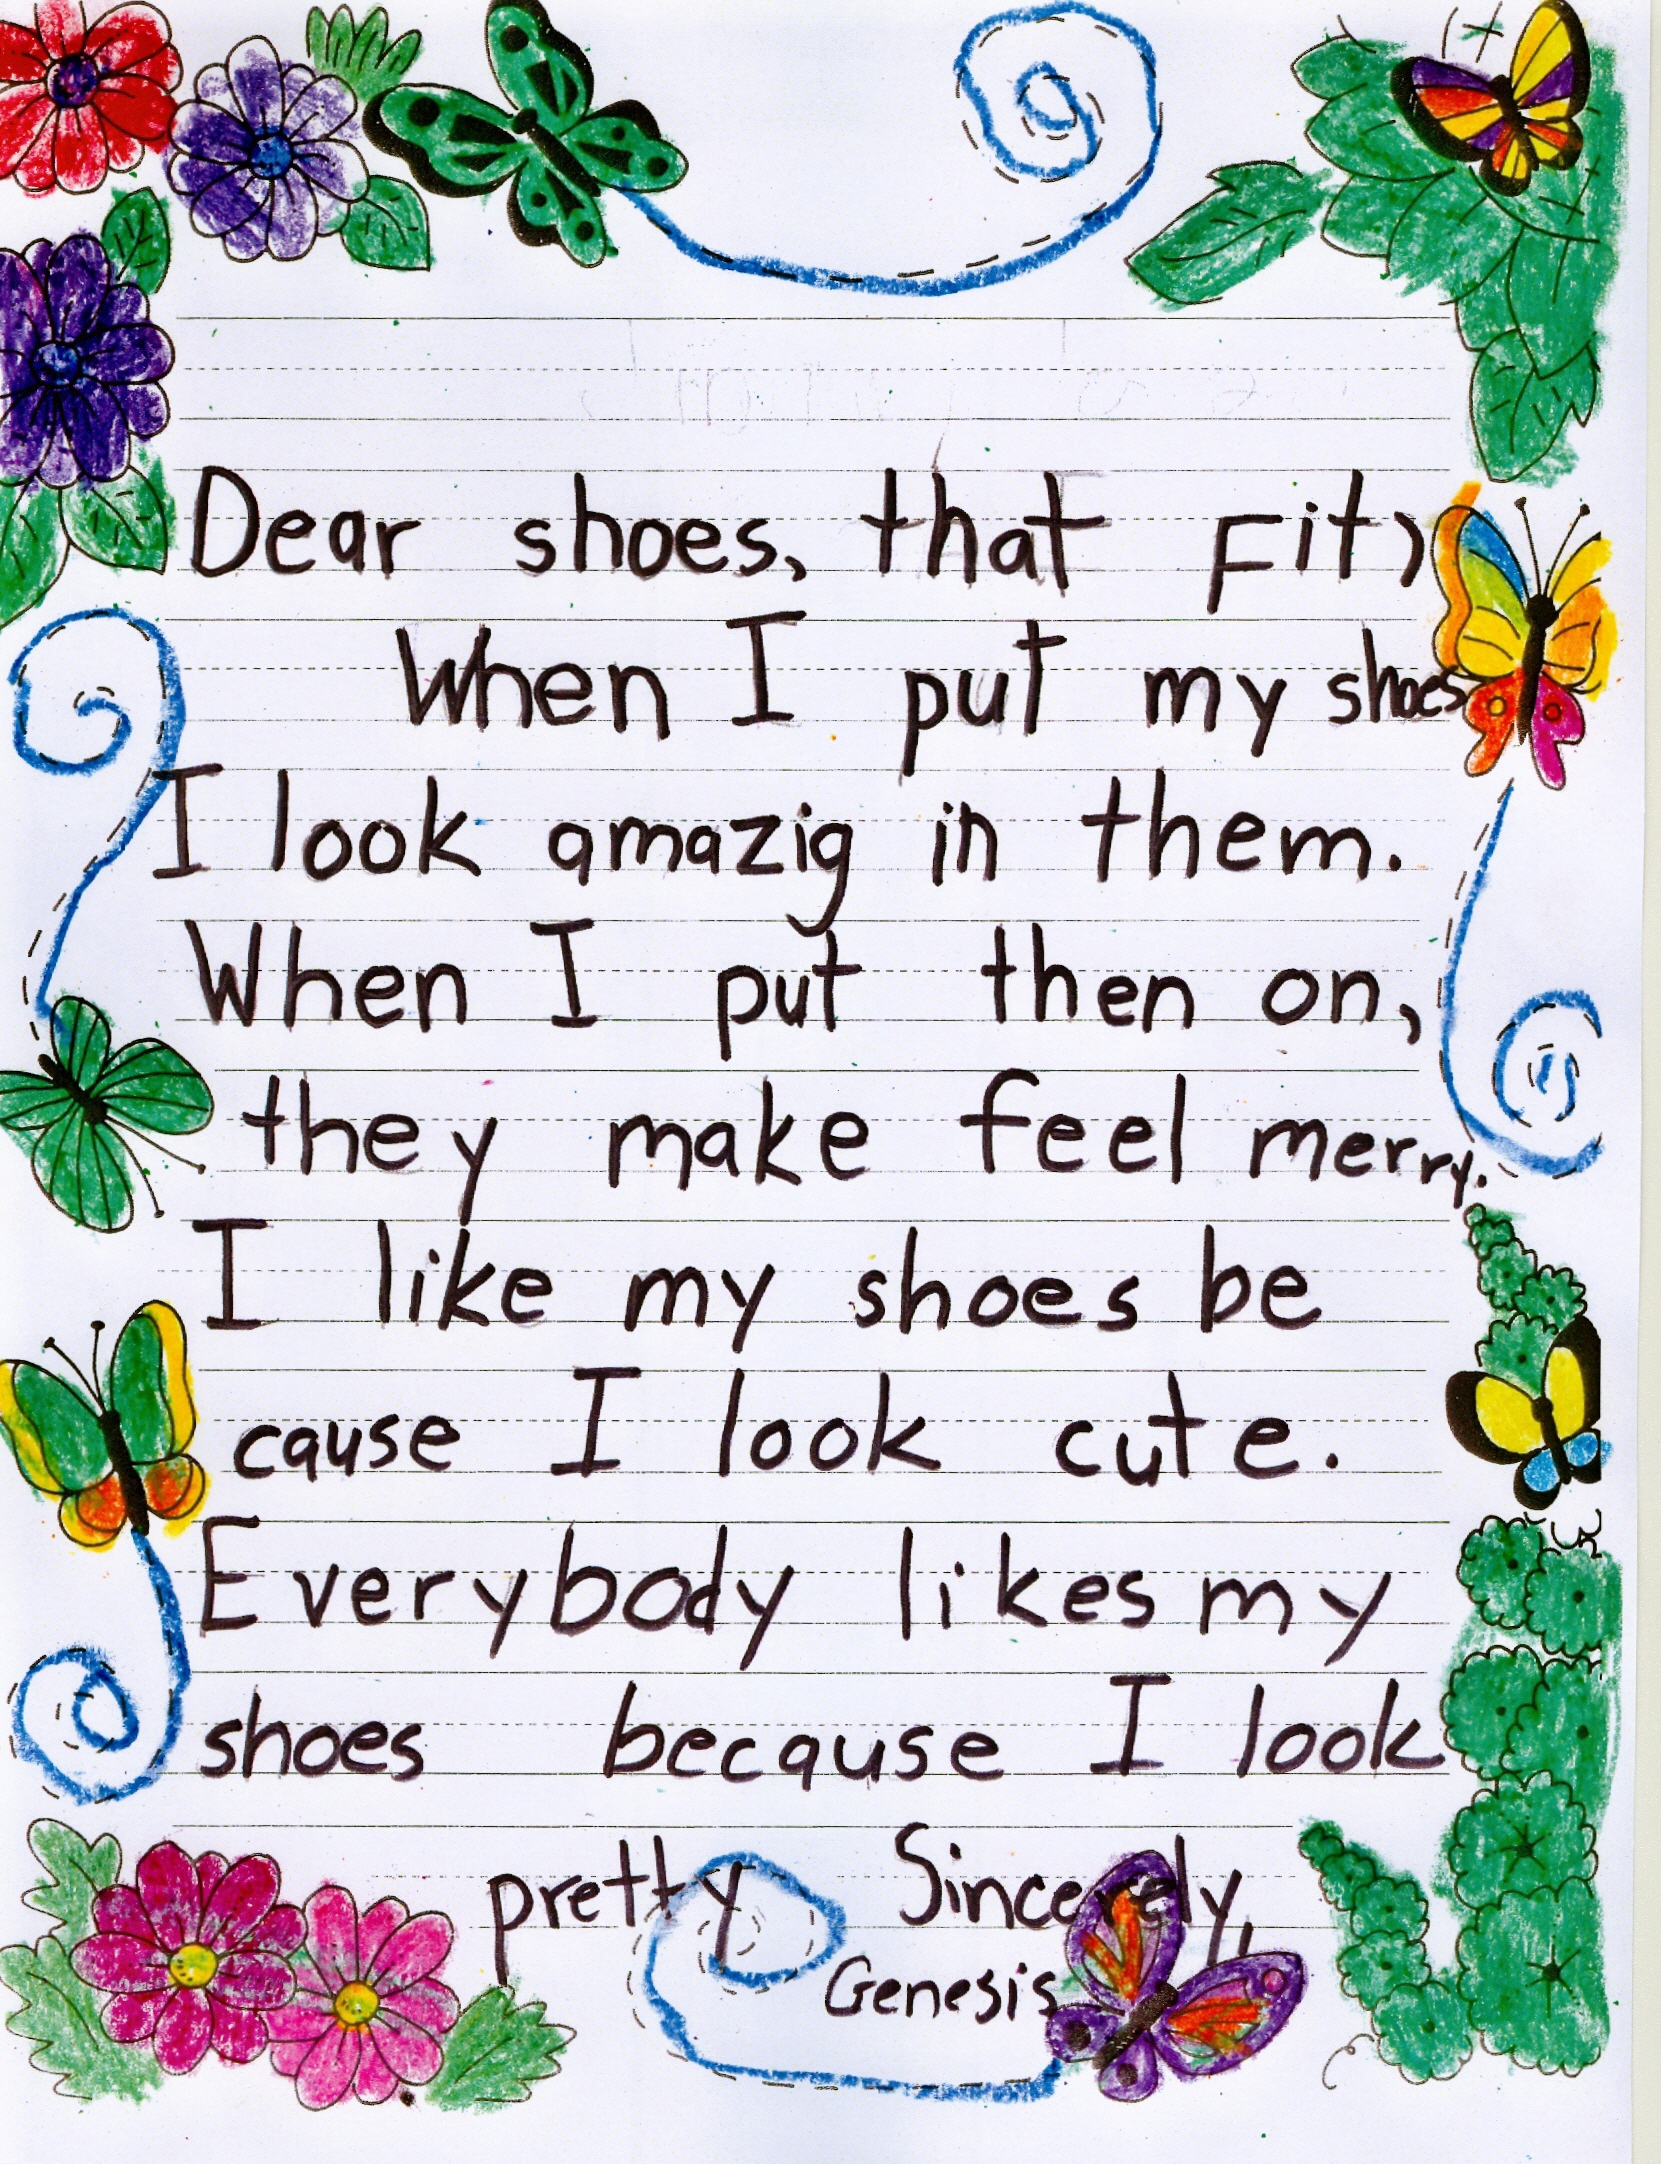 Dear shoes, that Fit,
When I put my shoes
I look amazig in them.
When I put then on,
they make feel merry.
I like my shoes be
cause I look cute.
Everybody likes my
shoes because I look
pretty Sincerely,
Genesis